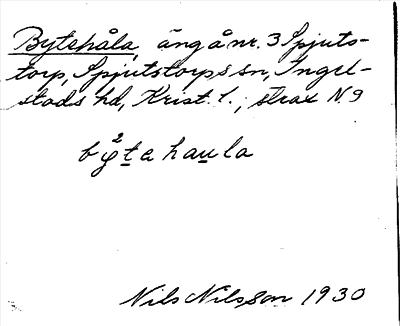 Bytehåla, äng å nr. 3 Spjuts-
torp, Spjutstorps sn, Ingel-
stads hd, Krist. l.; strax N 9
by²te haula
Nils Nilsson 1930